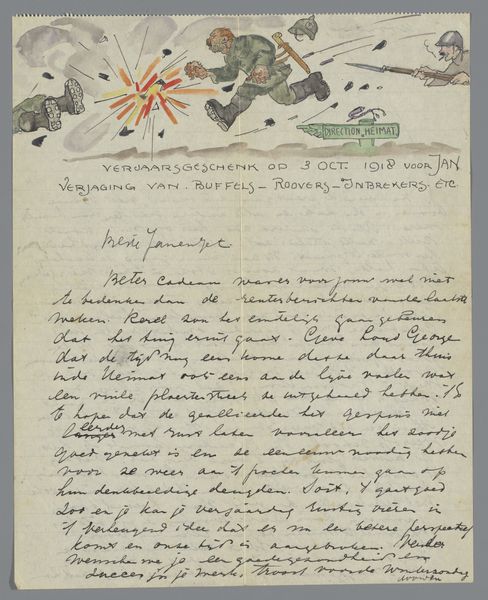 DIRECTION "HEIMAT"
VERJAARSGESCHENK OP 3 OCT. 1918 VOOR JAN
VERJAGING VAN. BUFFELS - ROOVERS - INBREKERS. ETC
Beste Jan en Jet.
Beter cadeau ware voor jouw wel niet
te bedenken dan de reuterberichten van de laatste
weken. Kerel zou het eindelijk gaan gebeuren
dat het tuig eruit gaat. Geve Loud George
dat de tijd nog eens kome dat ze daar thuis
in de Heimat ook eens aan de lijve voelen wat
een vuile ploertenstreek ze uitgehaald hebben. Is
te hopen dat de geallieerden het gespuis niet
eerder met rust laten voor aleer het zoodje
goed geknakt is en ze een eeuw noodig hebben
voor ze weer aan 't pochen kunnen gaan op
hun denkbeeldige deugden. Soit, 't gaat goed
zoo en je kan je verjaardag rustig vieren in
't verheugend idee dat er nu een betere perspectief
komt en onze tijd is aangebroken. Verder
wensch ik je een goede gezondheid en
succes in je werk, troost voor de